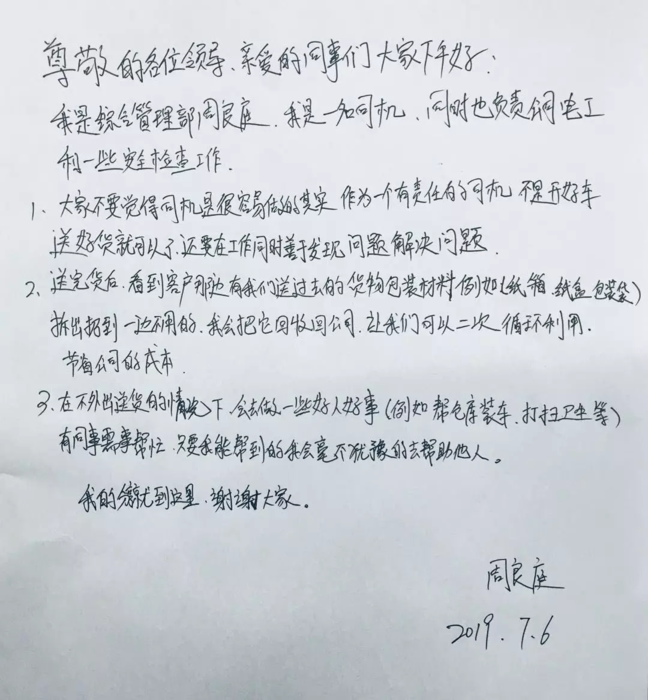 尊敬的各位领导、亲爱的同事们大家下午好:
我是综合管理部周良庭、我是一名司机、同时也负责铜电工
和一些安全检查工作.
1、大家不要觉得司机是很容易做的其实 作为一个有责任的司机 不是开好车
送好货就可以了.还要在工作同时善于发现问题解决问题.
2、送完货后.看到客户那边有我们送过去的货物包装材料(例如:纸箱 纸盒 包装袋)
拆出扔到一边不用的、我会把它回收回公司、让我们可以二次循环利用.
节省公司的成本.
3.在不外出送货的情况下.会去做一些好人好事(例如:帮仓库装车、打扫卫生等)
有同事需要帮忙.只要我能帮到的我会毫不犹豫的去帮助他人。
我的就到这里.谢谢大家。
周良庭
2019.7.6